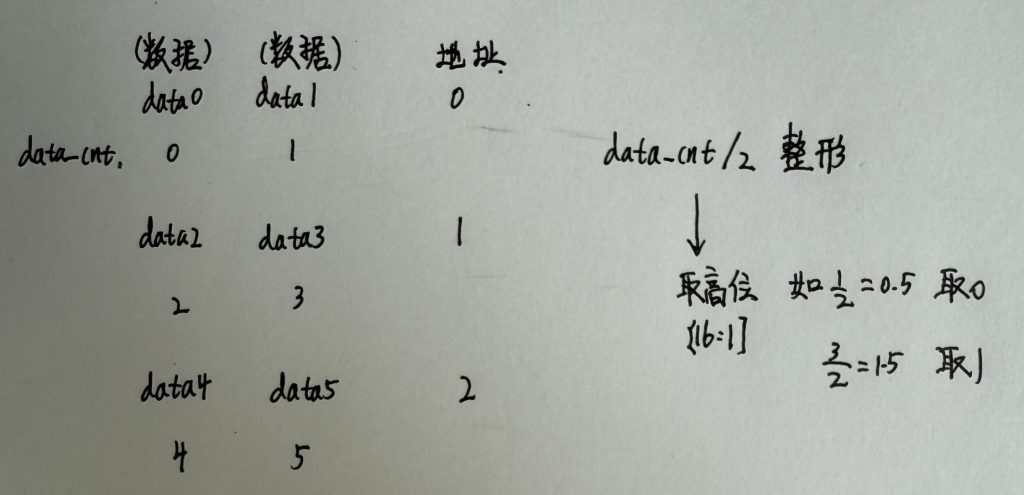 (数据) (数据) 地址.
data0 data1 0
data_cnt. 0 1
data_cnt/2 整形
data2 data3 1
2 3
取高位 如 1/2 =0.5 取0
[16:1]
3/2 =1.5 取1
data4 data5 2
4 5